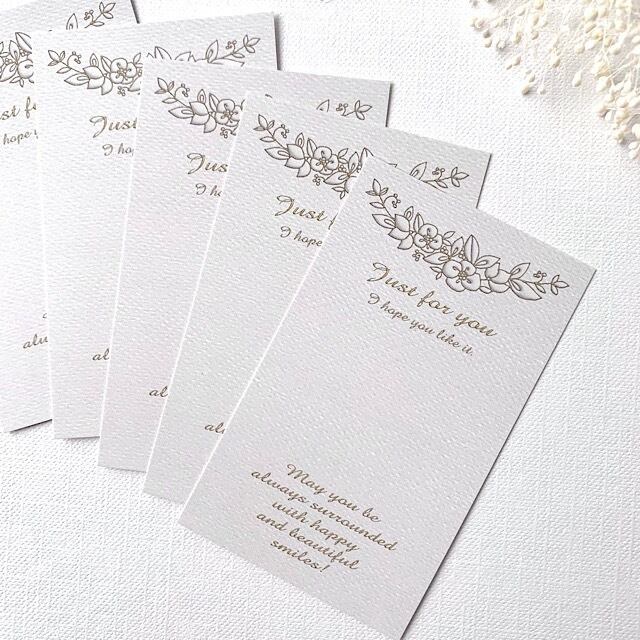 Just for you
I hope you like it.
May you be
always surrounded
with happy
and beautiful
smiles!
Just f
I hope
Just
I ho
Just
I h
Just fo
I hope yo
al
al
alw
alw